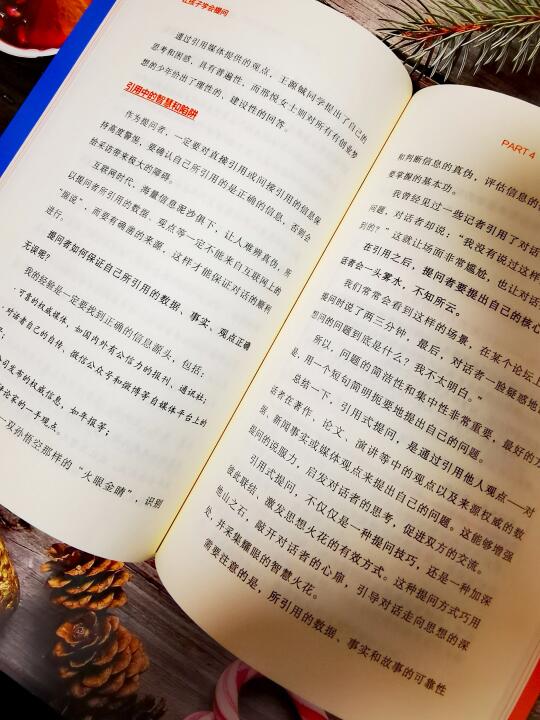 让孩子学会提问
通过引用媒体提供的观点，王源铖同学提出了自己的
思考和困惑，具有普遍性，而邢悦女士则对所有有创业梦
想的少年给出了理性的、建设性的回答。
引用中的智慧和陷阱
作为提问者，一定要对直接引用或间接引用的信息保
持高度警惕，要确认自己所引用的是正确的信息，否则会
给采访带来极大的障碍。
互联网时代，海量信息泥沙俱下，让人难辨真伪，所
以提问者所引用的数据、观点等一定不能来自互联网上的
“据说”，而要有确凿的来源，这样才能保证对话的顺利
进行。
提问者如何保证自己所引用的数据、事实、观点正确
无误呢？
我的经验是一定要找到正确的信息源头，包括：
可靠的权威媒体，如国内外有公信力的报刊、通讯社；
对话者自己的自传、微信公众号和微博等自媒体平台上的
公司发布的权威信息，如年报等；
评论家的一手观点。
双孙悟空那样的“火眼金睛”，识别
PART 4
和判断信息的真伪，评估信息的
要掌握的基本功。
我曾经见过一些记者引用了对话
问题，对话者却说：“我没有说过这样
到的？”这就让场面非常尴尬，也让对话
在引用之后，提问者要提出自己的核心
话者会一头雾水，不知所云。
我们常常会看到这样的场景，在某个论坛上
提问时说了两三分钟，最后，对话者一脸疑惑地
想问的问题到底是什么？我不太明白。”
所以，问题的简洁性和集中性非常重要，最好的方
是，用一个短句简明扼要地提出自己的问题。
总结一下，引用式提问，是通过引用他人观点——对
话者在著作、论文、演讲等中的观点以及来源权威的数
据、新闻事实或媒体观点来提出自己的问题。这能够增强
提问的说服力，启发对话者的思考，促进双方的交流。
引用式提问，不仅仅是一种提问技巧，还是一种加深
彼此联结、激发思想火花的有效方式。这种提问方式巧用
他山之石，敲开对话者的心扉，引导对话走向思想的深
处，并采集耀眼的智慧火花。
需要注意的是，所引用的数据、事实和故事的可靠性